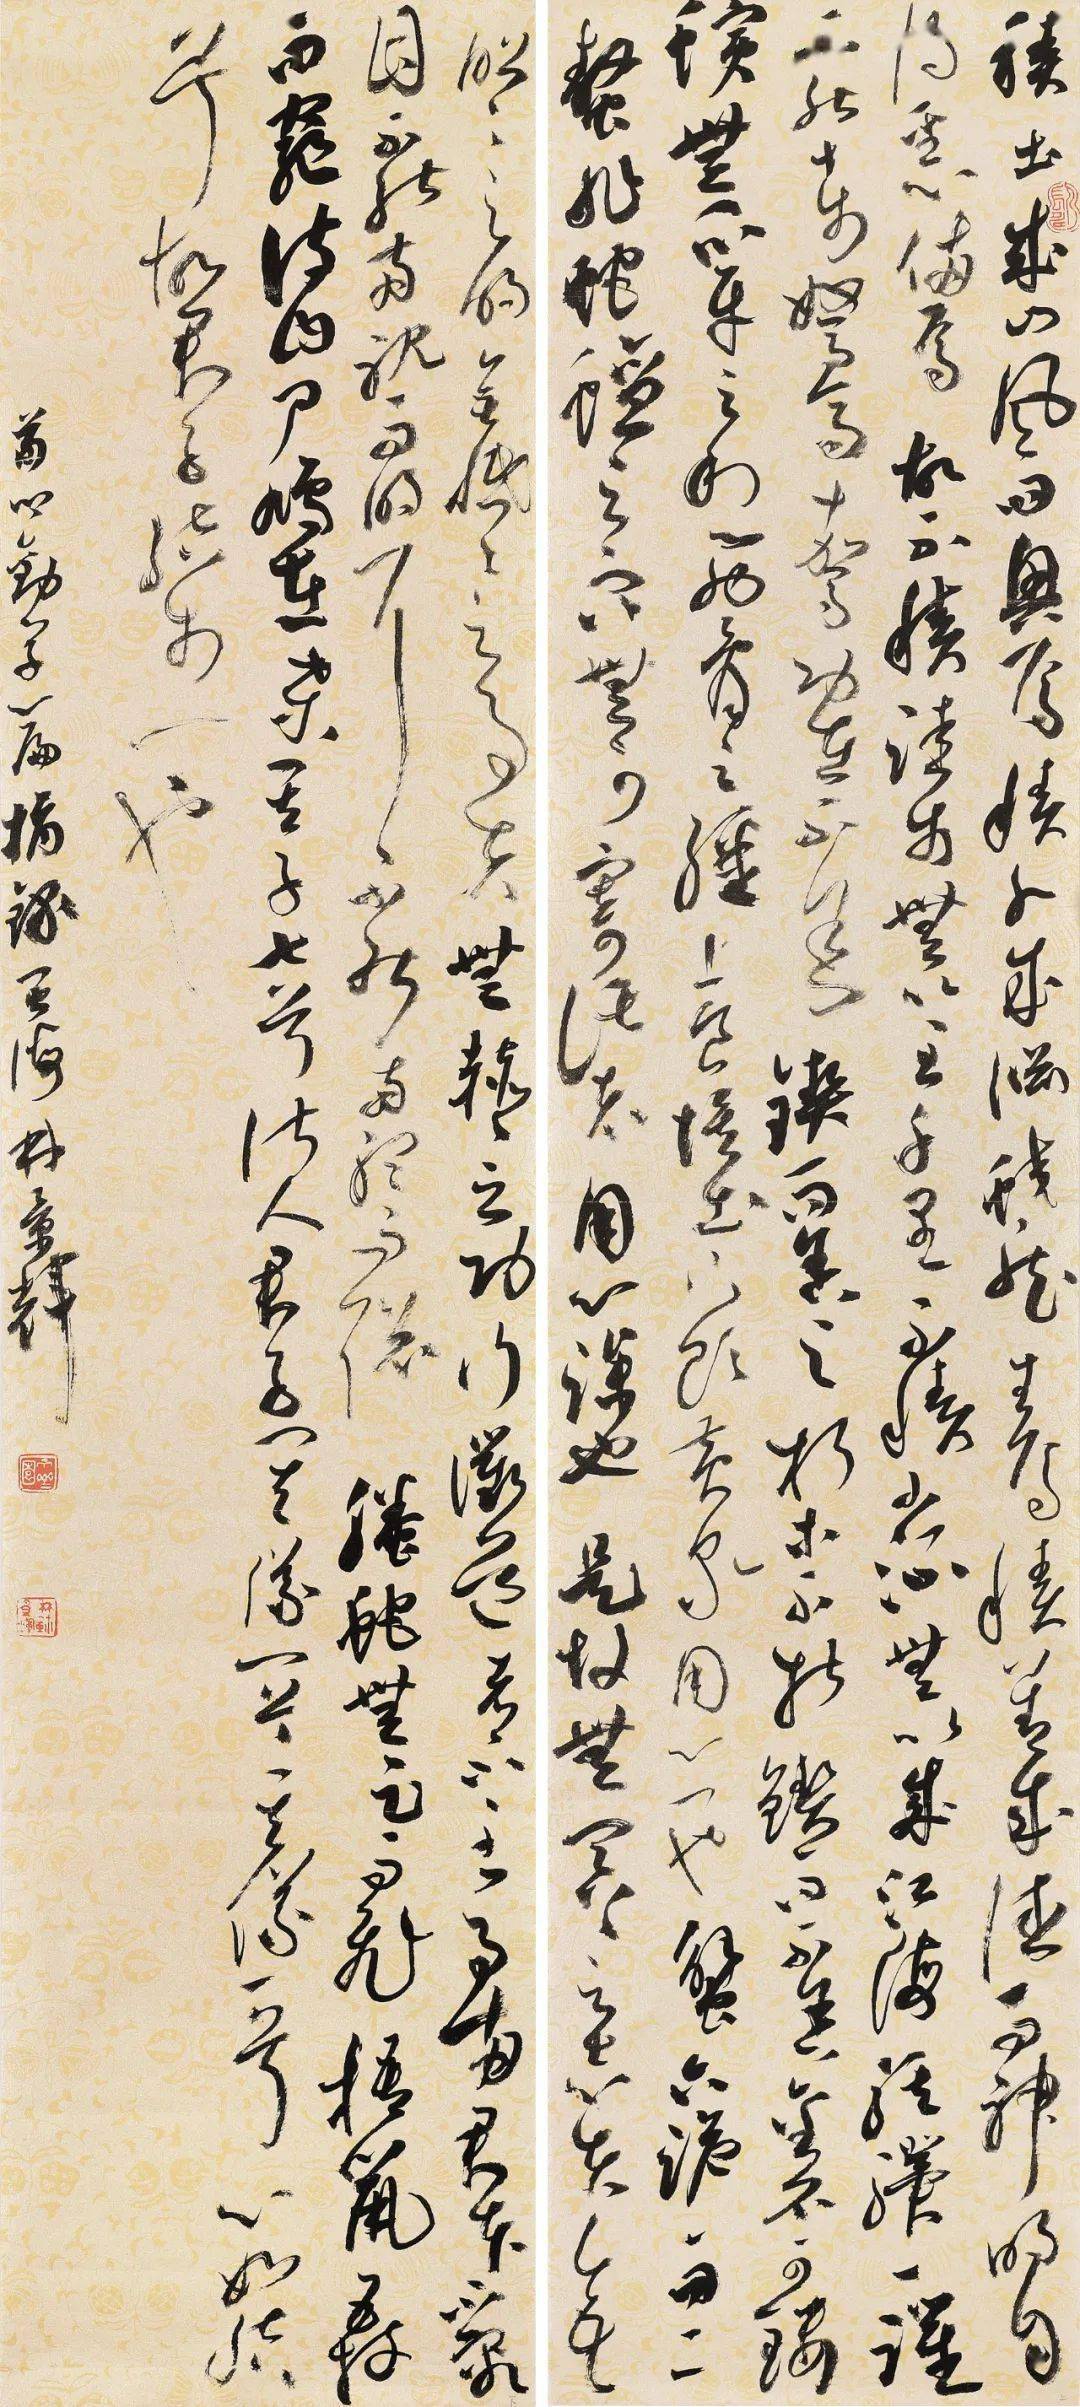 積土成山風雨興焉積水成淵蛟龍生焉積善成德而神明自
得聖心備焉故不積跬步無以至千里不積小流無以成江海騏驥一躍
不能十步駑馬十駕功在不舍鍥而舍之朽木不折鍥而不舍金石可鏤
螾無爪牙之利筋骨之強上食埃土下飲黃泉用心一也蟹六跪而二
螯非蛇蟺之穴無可寄託者用心躁也是故無冥冥之志者無
昭昭之明無惛惛之事者無赫赫之功行衢道者不至事兩君者不容
目不能兩視而明耳不能兩聽而聰螣蛇無足而飛梧鼠五技
而窮詩曰尸鳩在桑其子七兮淑人君子其儀一兮其儀一兮心如結
兮故君子結於一也
荀子勸學篇摘錄林景輝